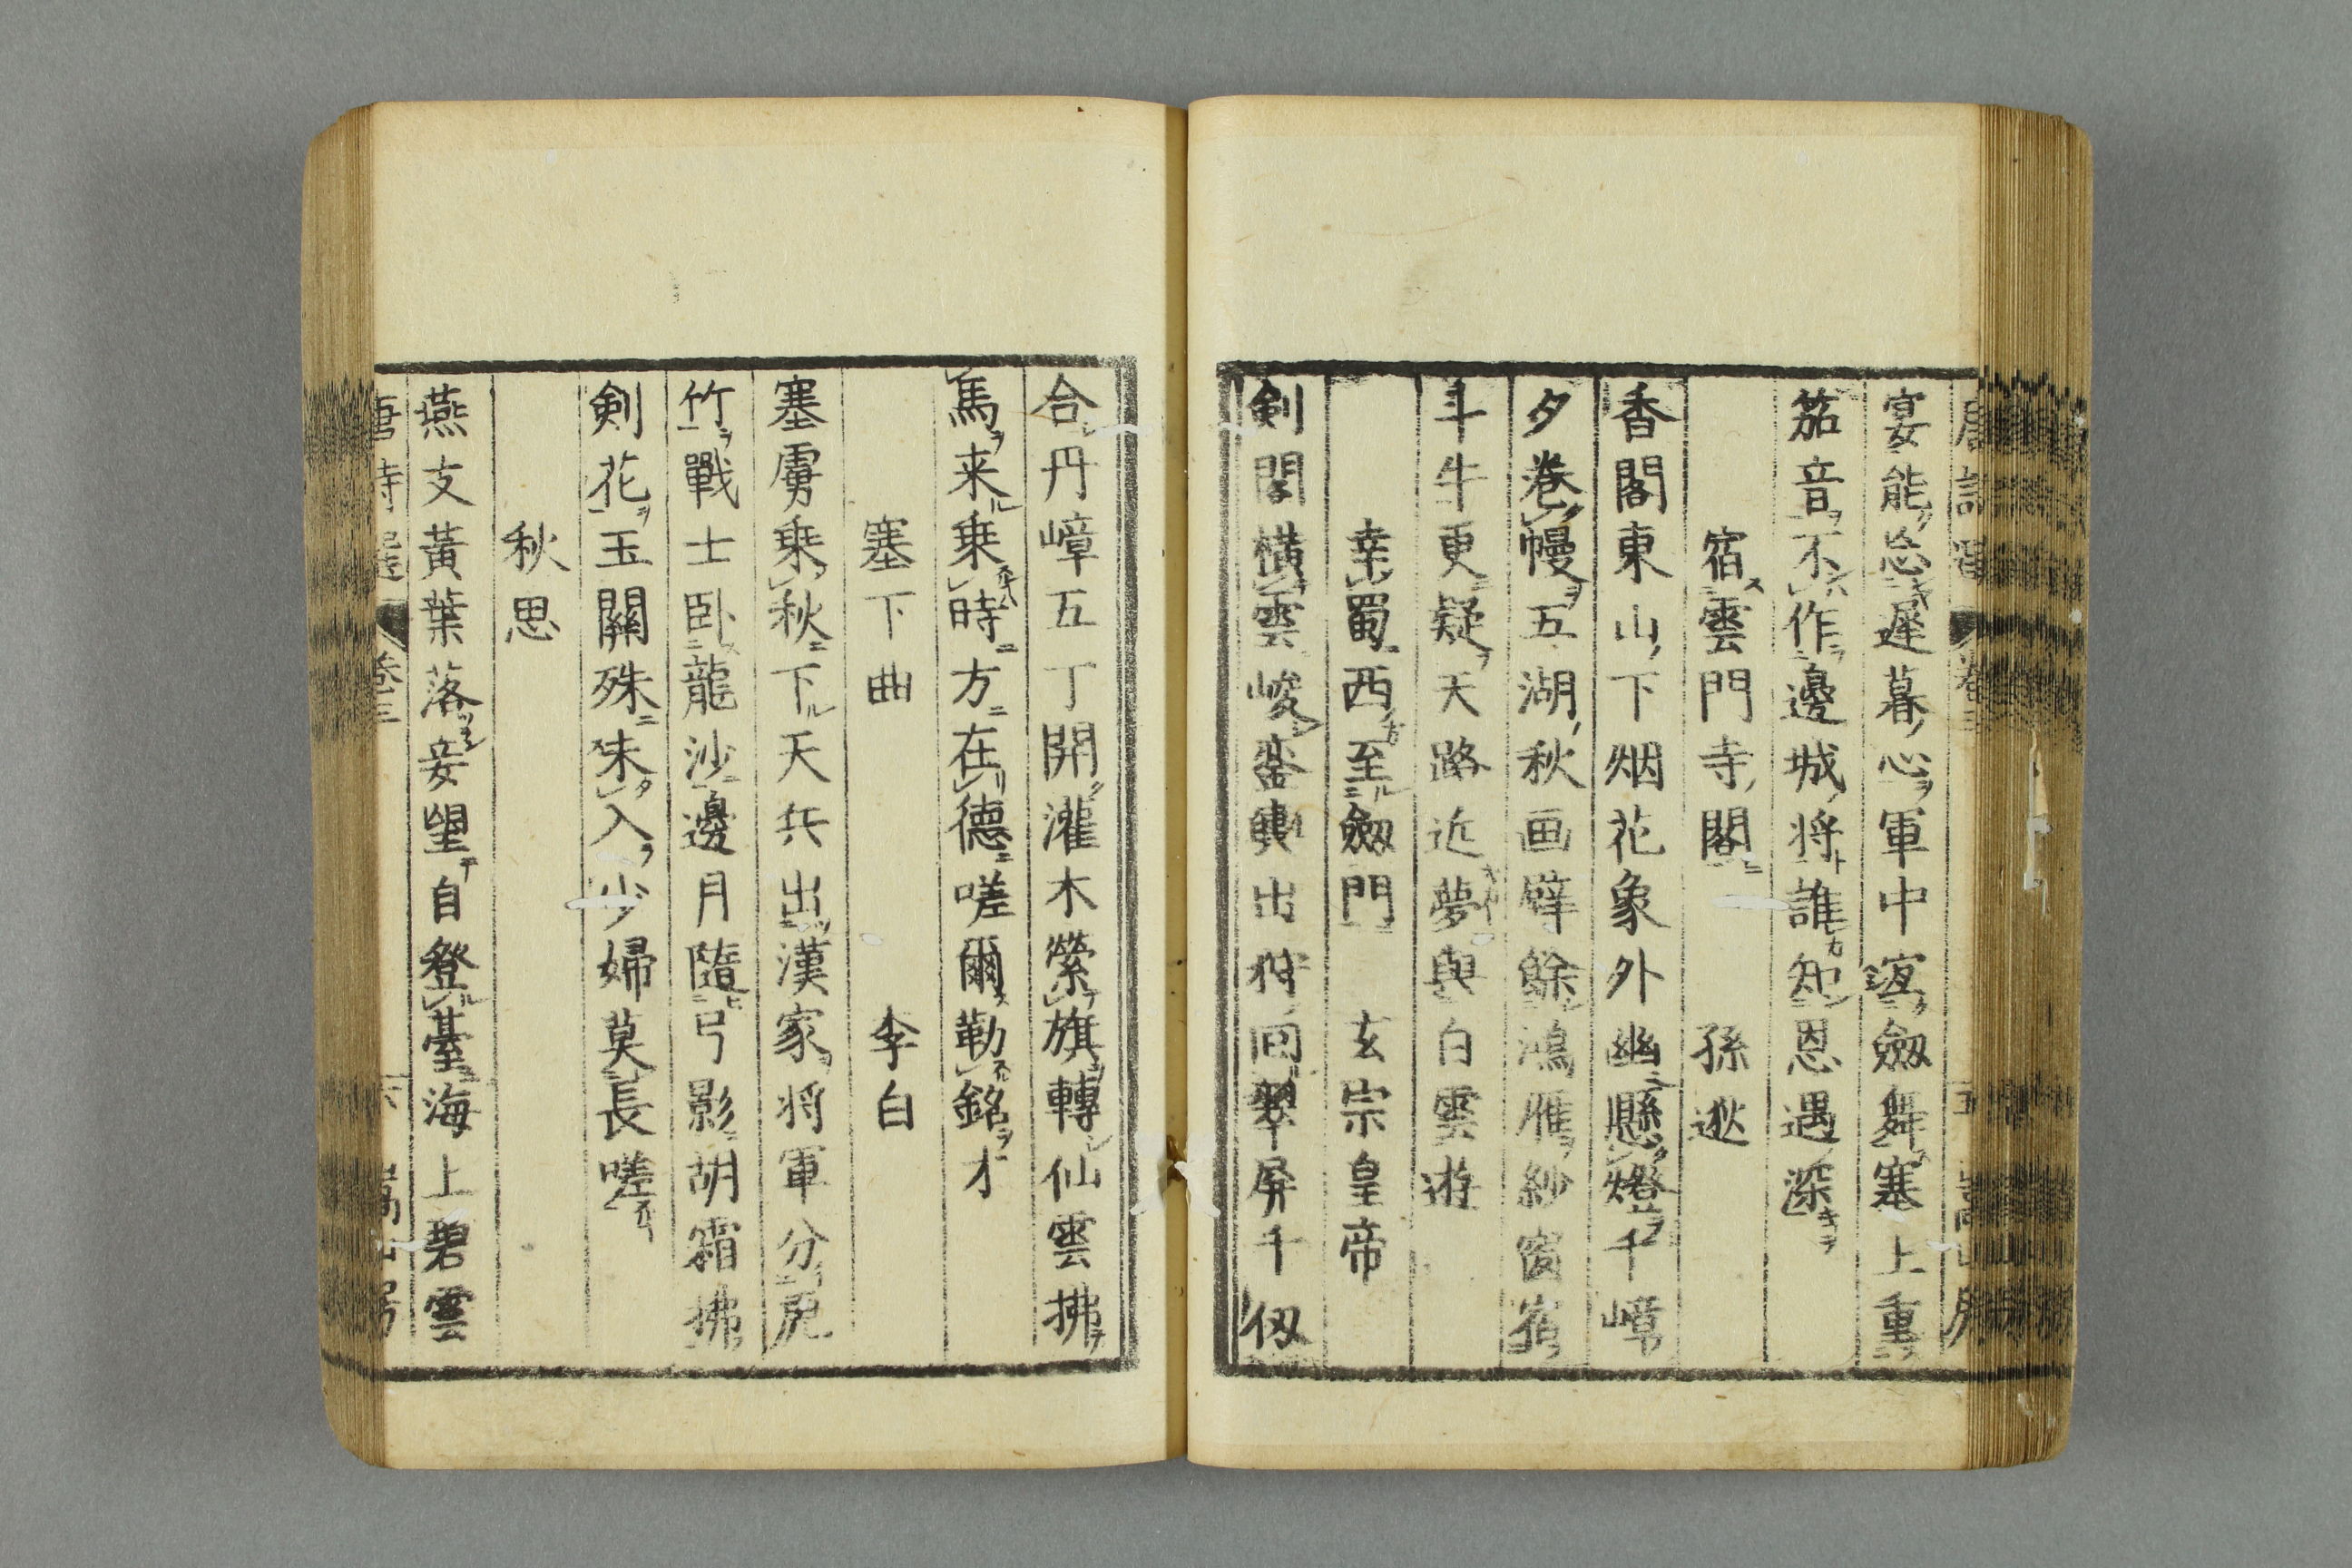 唐詩選 卷三 五 嵩山房
宴能忘遲暮心軍中宜劔舞塞上重
笳音不作邊城将誰知恩遇深
宿雲門寺閣 孫逖
香閣東山下烟花象外幽懸燈千嶂
夕卷幔五湖秋画壁餘鴻雁紗窗宿
斗牛更疑天路近夢與白雲遊
幸蜀西至劔門 玄宗皇帝
剣閣横雲峻鑾輿出狩回翠屏千仞
合丹嶂五丁開灌木縈旗轉仙雲拂
馬来乗時方在德嗟爾勒銘才
塞下曲 李白
塞虜乗秋下天兵出漢家将軍分虎
竹戰士卧龍沙邊月隨弓影胡霜拂
剣花玉關殊未入少婦莫長嗟
秋思
燕支黃葉落妾望自登臺海上碧雲
唐詩選 卷三 六 嵩山房